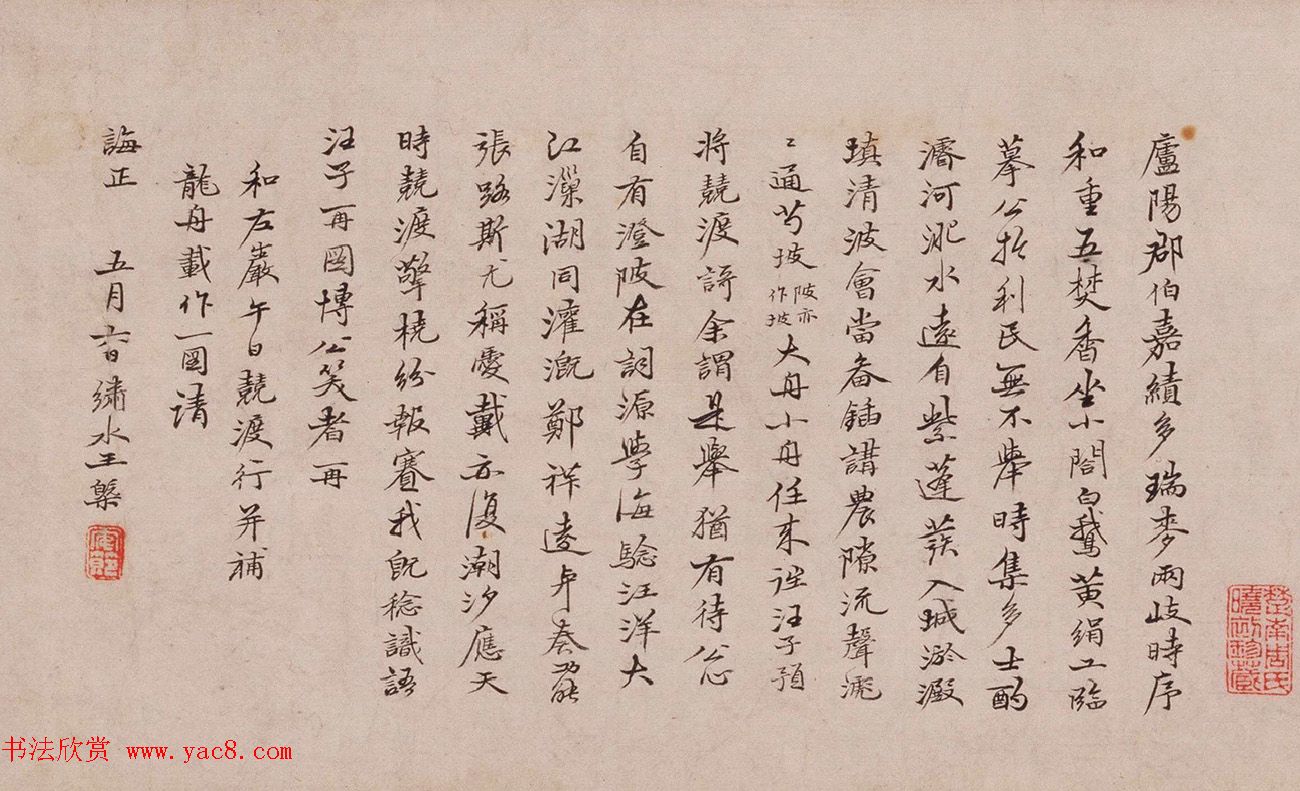 廬陽郡伯嘉績多瑞麥兩岐時序
和重五焚香坐小閤白鵝黃絹工臨
摹公於利民無不舉時集多士酌
濬河淝水遠自紫蓬發入城淤澱
填清波會當畚鍤講農隙流聲濊
〻通芍坡陂亦作坡大舟小舟任來往汪子預
將競渡謌余謂是舉猶有待公
自有澄陂在詞源學海驗汪洋大
江漅湖同灌溉鄭祥遠弁奏
張路斯尤稱愛戴亦復潮汐應天
時競渡擎橈紛報賽我既稔識語
汪子一再圖博公笑者再
和左巖午日競渡行并補
龍舟載作一圖請
誨正 五月六日繡水王槩
楚南周氏
珍藏
书法欣赏 www.yac8.com